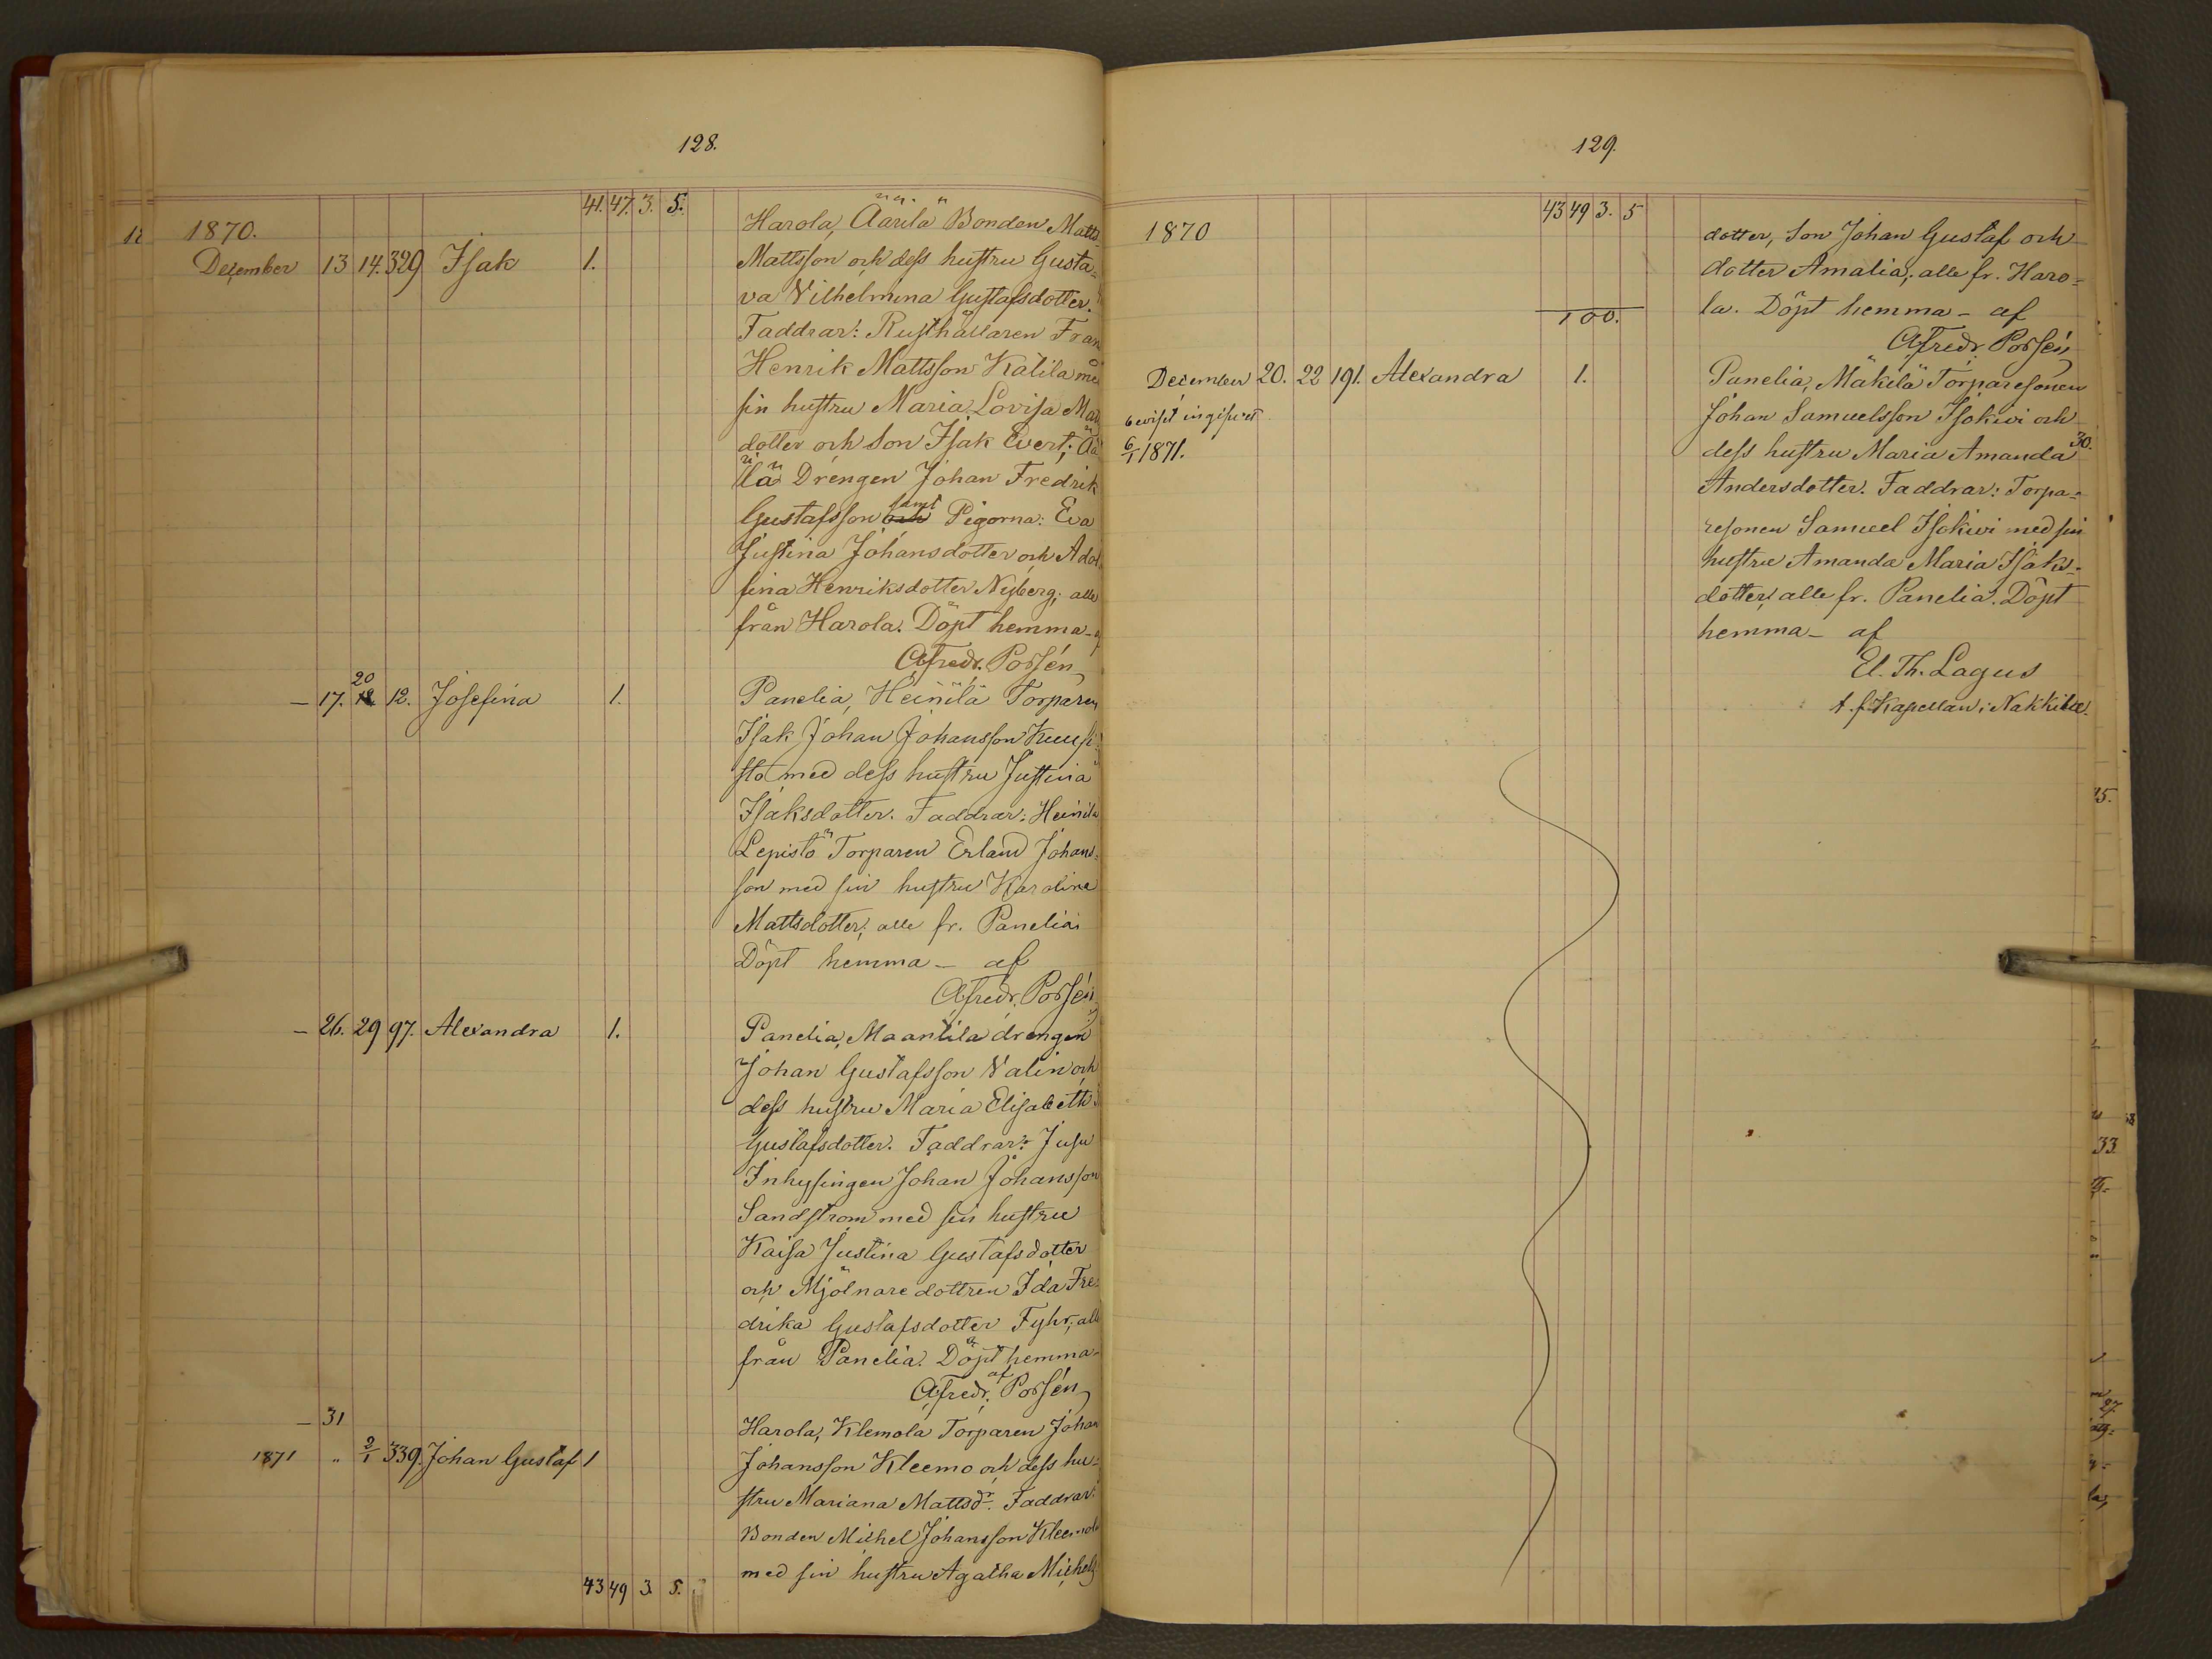 128.
41. 47. 3. 5.
1870.
December 13 14. 329 Isak 1.
Harola, Äärilä Bonden Matts
Mattsson och dess hustru Gusta-
va Vilhelmina Gustafsdotter.
Faddrar: Rusthållaren Fran
Henrik Mattsson Kalila med
sin hustru Maria Lovisa Mat
dotter och Son Isak Evert; Ää
ilä Drengen Johan Fredrik
Gustafsson och samt Pigorna: Eva
Justina Johansdotter och Adol
fina Henriksdotter Nyberg; alle
från Harola. Döpt hemma - af
Afredr. Possén
— 17. 18 20 12. Josefina 1.
Panelia, Heinilä Torparen
Isak Johan Johansson Kuusi
sto med dess hustru Justina
Isaksdotter. Faddrar: Heinilä
Lepistö Torparen Erland Johans-
son med sin hustru Karolina
Mattsdotter; alle fr. Panelia
Döpt hemma — af
Afredr. Possén
— 26. 29 97. Alexandra 1.
Panelia, Maantila drengen
Johan Gustafsson Valin och
dess hustru Maria Elisabeth
Gustafsdotter. Faddrar: Jusu
Inhysingen Johan Johansson
Sandstrom med sin hustru
Kaisa Justina Gustafsdotter
och Mjölnare dottren Ida Fre-
drika Gustafsdotter Fyhr; alle
från Panelia. Döpt hemma -
af
Afredr. Possén
— 31
Harola, Klemola Torparen Johan
1871 " 2/1 339. Johan Gustaf 1
Johansson Kleemo och dess hu-
stru Mariana Mattsdr. Faddrar:
Bonden Michel Johansson Kleemola
med sin hustru Agatha Michels
43 49 3. 5.
129.
43 49 3. 5
1870
dotter, Son Johan Gustaf och
dotter Amalia; alle fr. Haro-
la. Döpt hemma — af
100.
Afredr. Possén
December 20. 22 191. Alexandra 1.
bevist ingifvet
6/1 1871.
Panelia, Mäkelä Torparesonen
Johan Samuelsson Isokivi och
dess hustru Maria Amanda
30.
Andersdotter. Faddrar: Torpa-
resonen Samuel Isokivi med sin
hustru Amanda Maria Isaks-
dotter; alle fr. Panelia. Döpt
hemma — af
El. Th. Lagus
t. f. Kapellan i Nakkila.